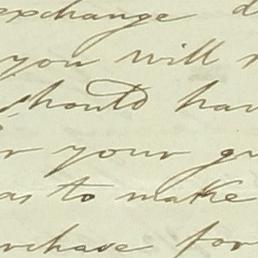 exchange d
you will r
should hav
r your gr
as to make
rchase for